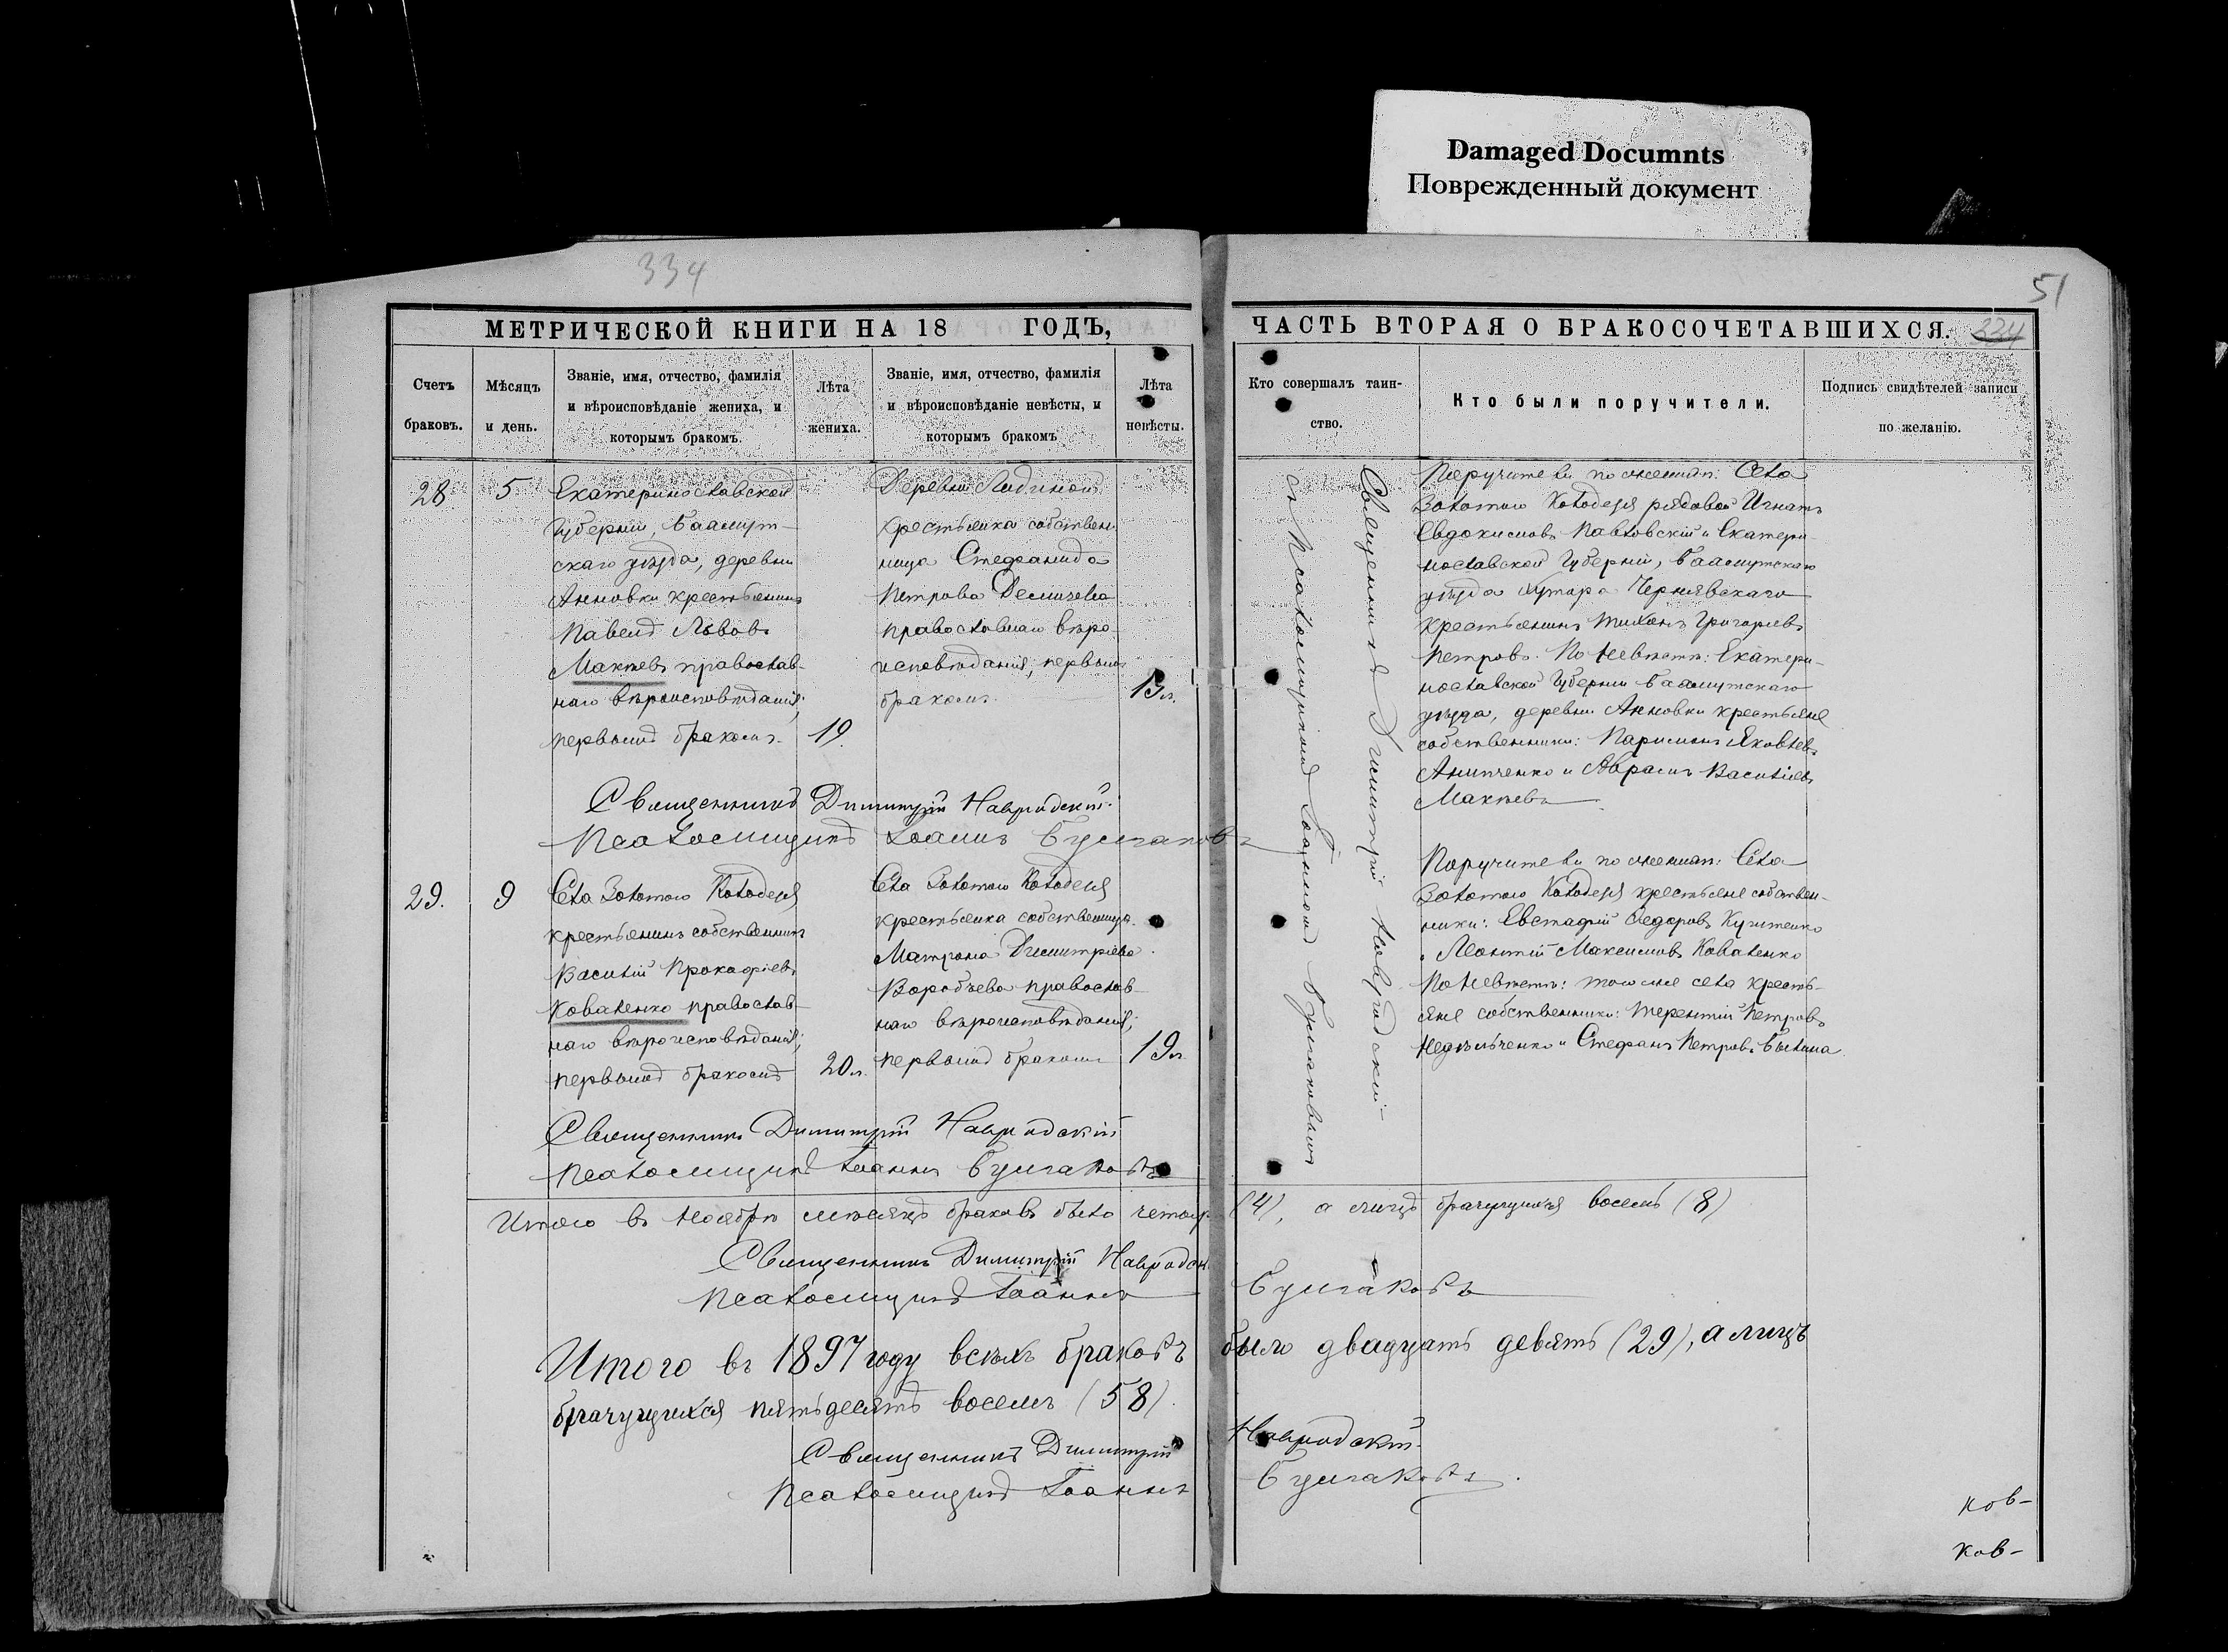 Damaged Documnts
Поврежденный документ
334
51
МЕТРИЧЕСКОЙ КНИГИ НА 18 ГОДЪ,
ЧАСТЬ ВТОРАЯ О БРАКОСОЧЕТАВШИХСЯ. 334
Счетъ браковъ.
Мѣсяцъ и день.
Званіе, имя, отчество, фамилія
и вѣроисповѣданіе жениха, и
которымъ бракомъ.
Лѣта
жениха.
Званіе, имя, отчество, фамилія
и вѣроисповѣданіе невѣсты, и
которымъ бракомъ
Лѣта
невѣсты.
Кто совершалъ таин-
ство.
Кто были поручители.
Подпись свидѣтелей записи
по желанію.
28.
5
Екатеринославской
Губерніи, Бахмут-
скаго уѣзда, деревни
Анновки крестьянинъ
Павелъ Львовъ
Макѣевъ православ-
наго вѣроисповѣданія;
первымъ бракомъ.
19.
Деревни
крестьянка собствен
ница Стефанида
Петрова
православнаго вѣро-
исповѣданія, первымъ
бракомъ.
Священникъ Димитрій Навродскій.
Псаломщикъ Іоаннъ Булгаковъ
29.
9
Села Золотого Колодезя
крестьянинъ собственникъ
Василій Прокофіевъ
Коваленко православ-
наго вѣроисповѣданія;
первымъ бракомъ
20 л.
Села Золотого Колодезя
крестьянка собственница
Матрона Димитріева
Воробьева православ-
наго вѣроисповѣданія;
первымъ бракомъ
19 л.
Священникъ Димитрій Навродскій
Псаломщикъ Іоаннъ Булгаковъ
Священникъ Димитрій Навродскій
съ Псаломщикомъ Іоанномъ Булгаковымъ
Поручители по женихѣ: Села
Золотого Колодезя рядовой Игнатъ
Евдокимовъ Павловскій и Екатери-
нославской Губерніи, Бахмутскаго
уѣзда хутора Чернявскаго
крестьянинъ Тихонъ Григорьевъ
Петровъ. По невѣстѣ: Екатери-
нославской Губерніи Бахмутскаго
уѣзда, деревни Анновки крестьяне
собственники: Парамонъ Яковлевъ
и Аврамъ Васильевъ
Макѣевъ
Поручители по женихѣ: Села
Золотого Колодезя крестьяне собствен-
ники: Евстафій Ѳедоровъ
и Леонтій Максимовъ Коваленко
По невѣстѣ: того же села кресть-
яне собственники: Терентій Петровъ
Недѣльченко и Стефанъ Петровъ
Итого въ Ноябрѣ мѣсяцѣ браковъ было четыр. (4), а лицъ брачущихся восемь (8)
Священникъ Димитрій Навродск.
Псаломщикъ Іоаннъ Булгаковъ
Итого въ 1897 году всѣхъ браковъ было двадцать девять (29), а лицъ
брачущихся пятьдесятъ восемь (58).
Священникъ Димитрій Навродскій.
Псаломщикъ Іоаннъ Булгаковъ.
ков-
ков-